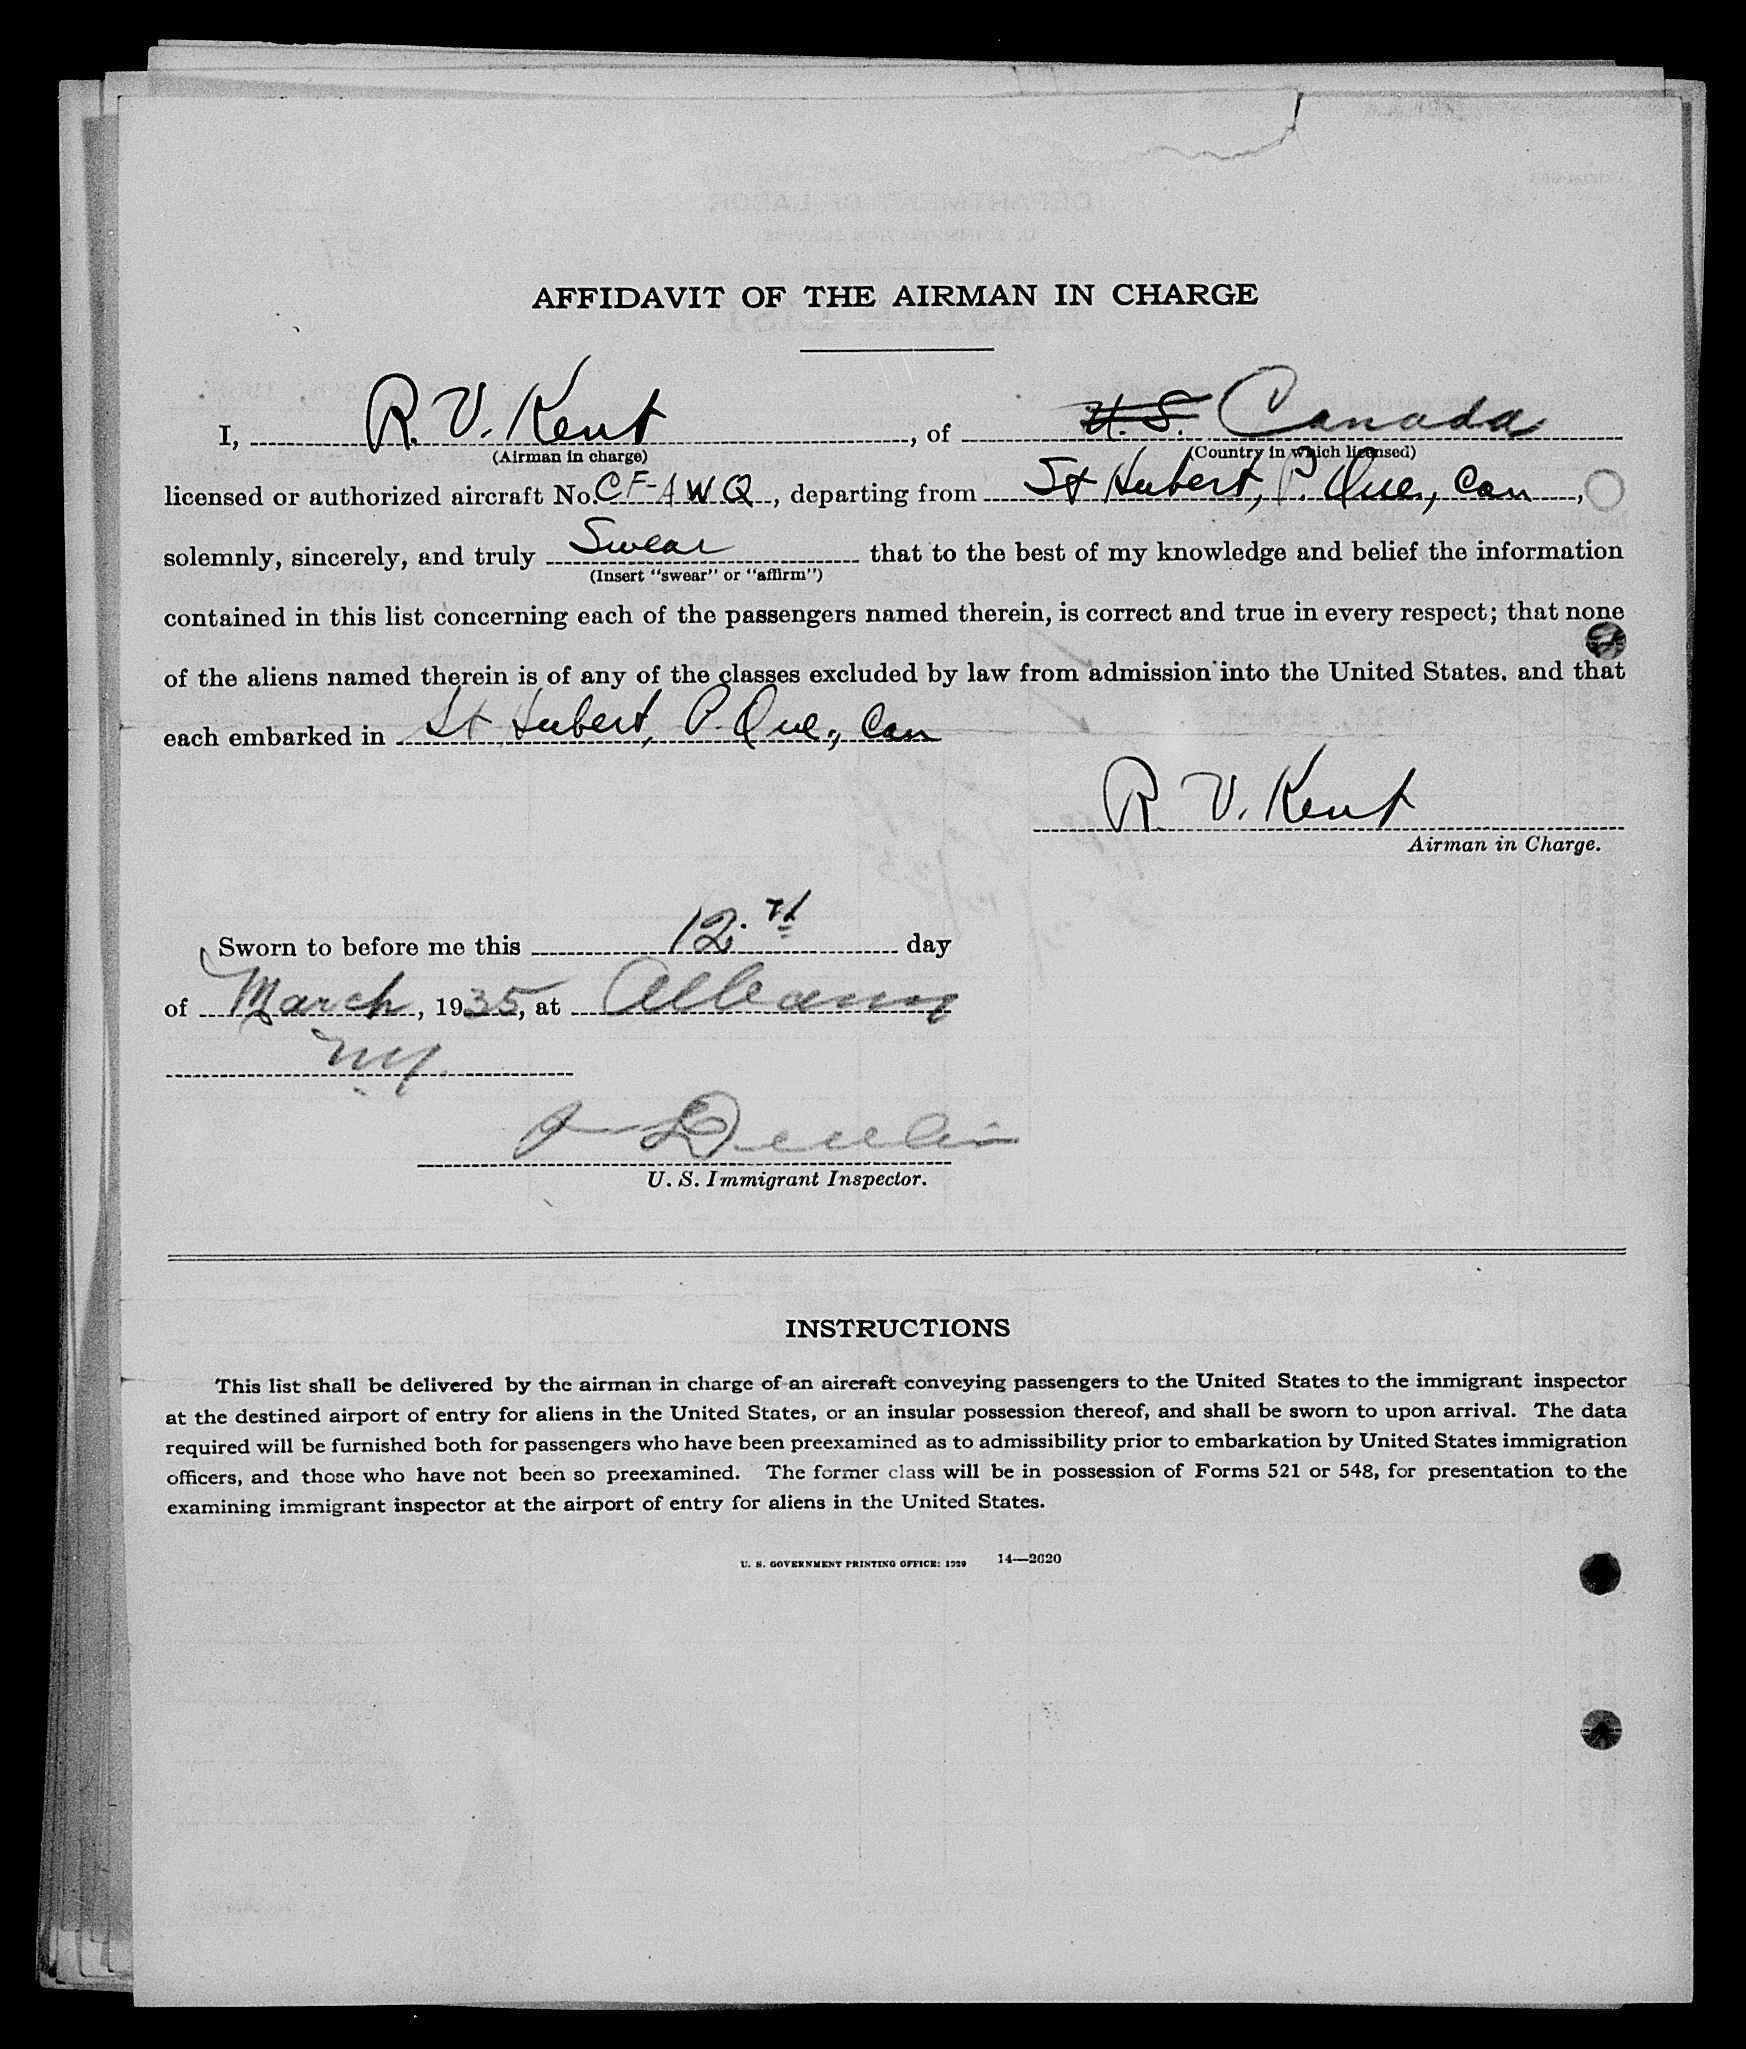 AFFIDAVIT OF THE AIRMAN IN CHARGE
I, R. V. Kent, of U. S. Canada
(Airman in charge) (Country in which licensed)
licensed or authorized aircraft No. CF-AWQ, departing from St Hubert, P. Que., Can,
solemnly, sincerely, and truly Swear that to the best of my knowledge and belief the information
(Insert "swear" or "affirm")
contained in this list concerning each of the passengers named therein, is correct and true in every respect; that none
of the aliens named therein is of any of the classes excluded by law from admission into the United States. and that
each embarked in St Hubert, P. Que., Can
R. V. Kent
Airman in Charge.
Sworn to before me this 12 day
of March, 1935, at Albany
NY.
U. S. Immigrant Inspector.
INSTRUCTIONS
This list shall be delivered by the airman in charge of an aircraft conveying passengers to the United States to the immigrant inspector
at the destined airport of entry for aliens in the United States, or an insular possession thereof, and shall be sworn to upon arrival. The data
required will be furnished both for passengers who have been preexamined as to admissibility prior to embarkation by United States immigration
officers, and those who have not been so preexamined. The former class will be in possession of Forms 521 or 548, for presentation to the
examining immigrant inspector at the airport of entry for aliens in the United States.
U. S. GOVERNMENT PRINTING OFFICE: 1929 14—2620